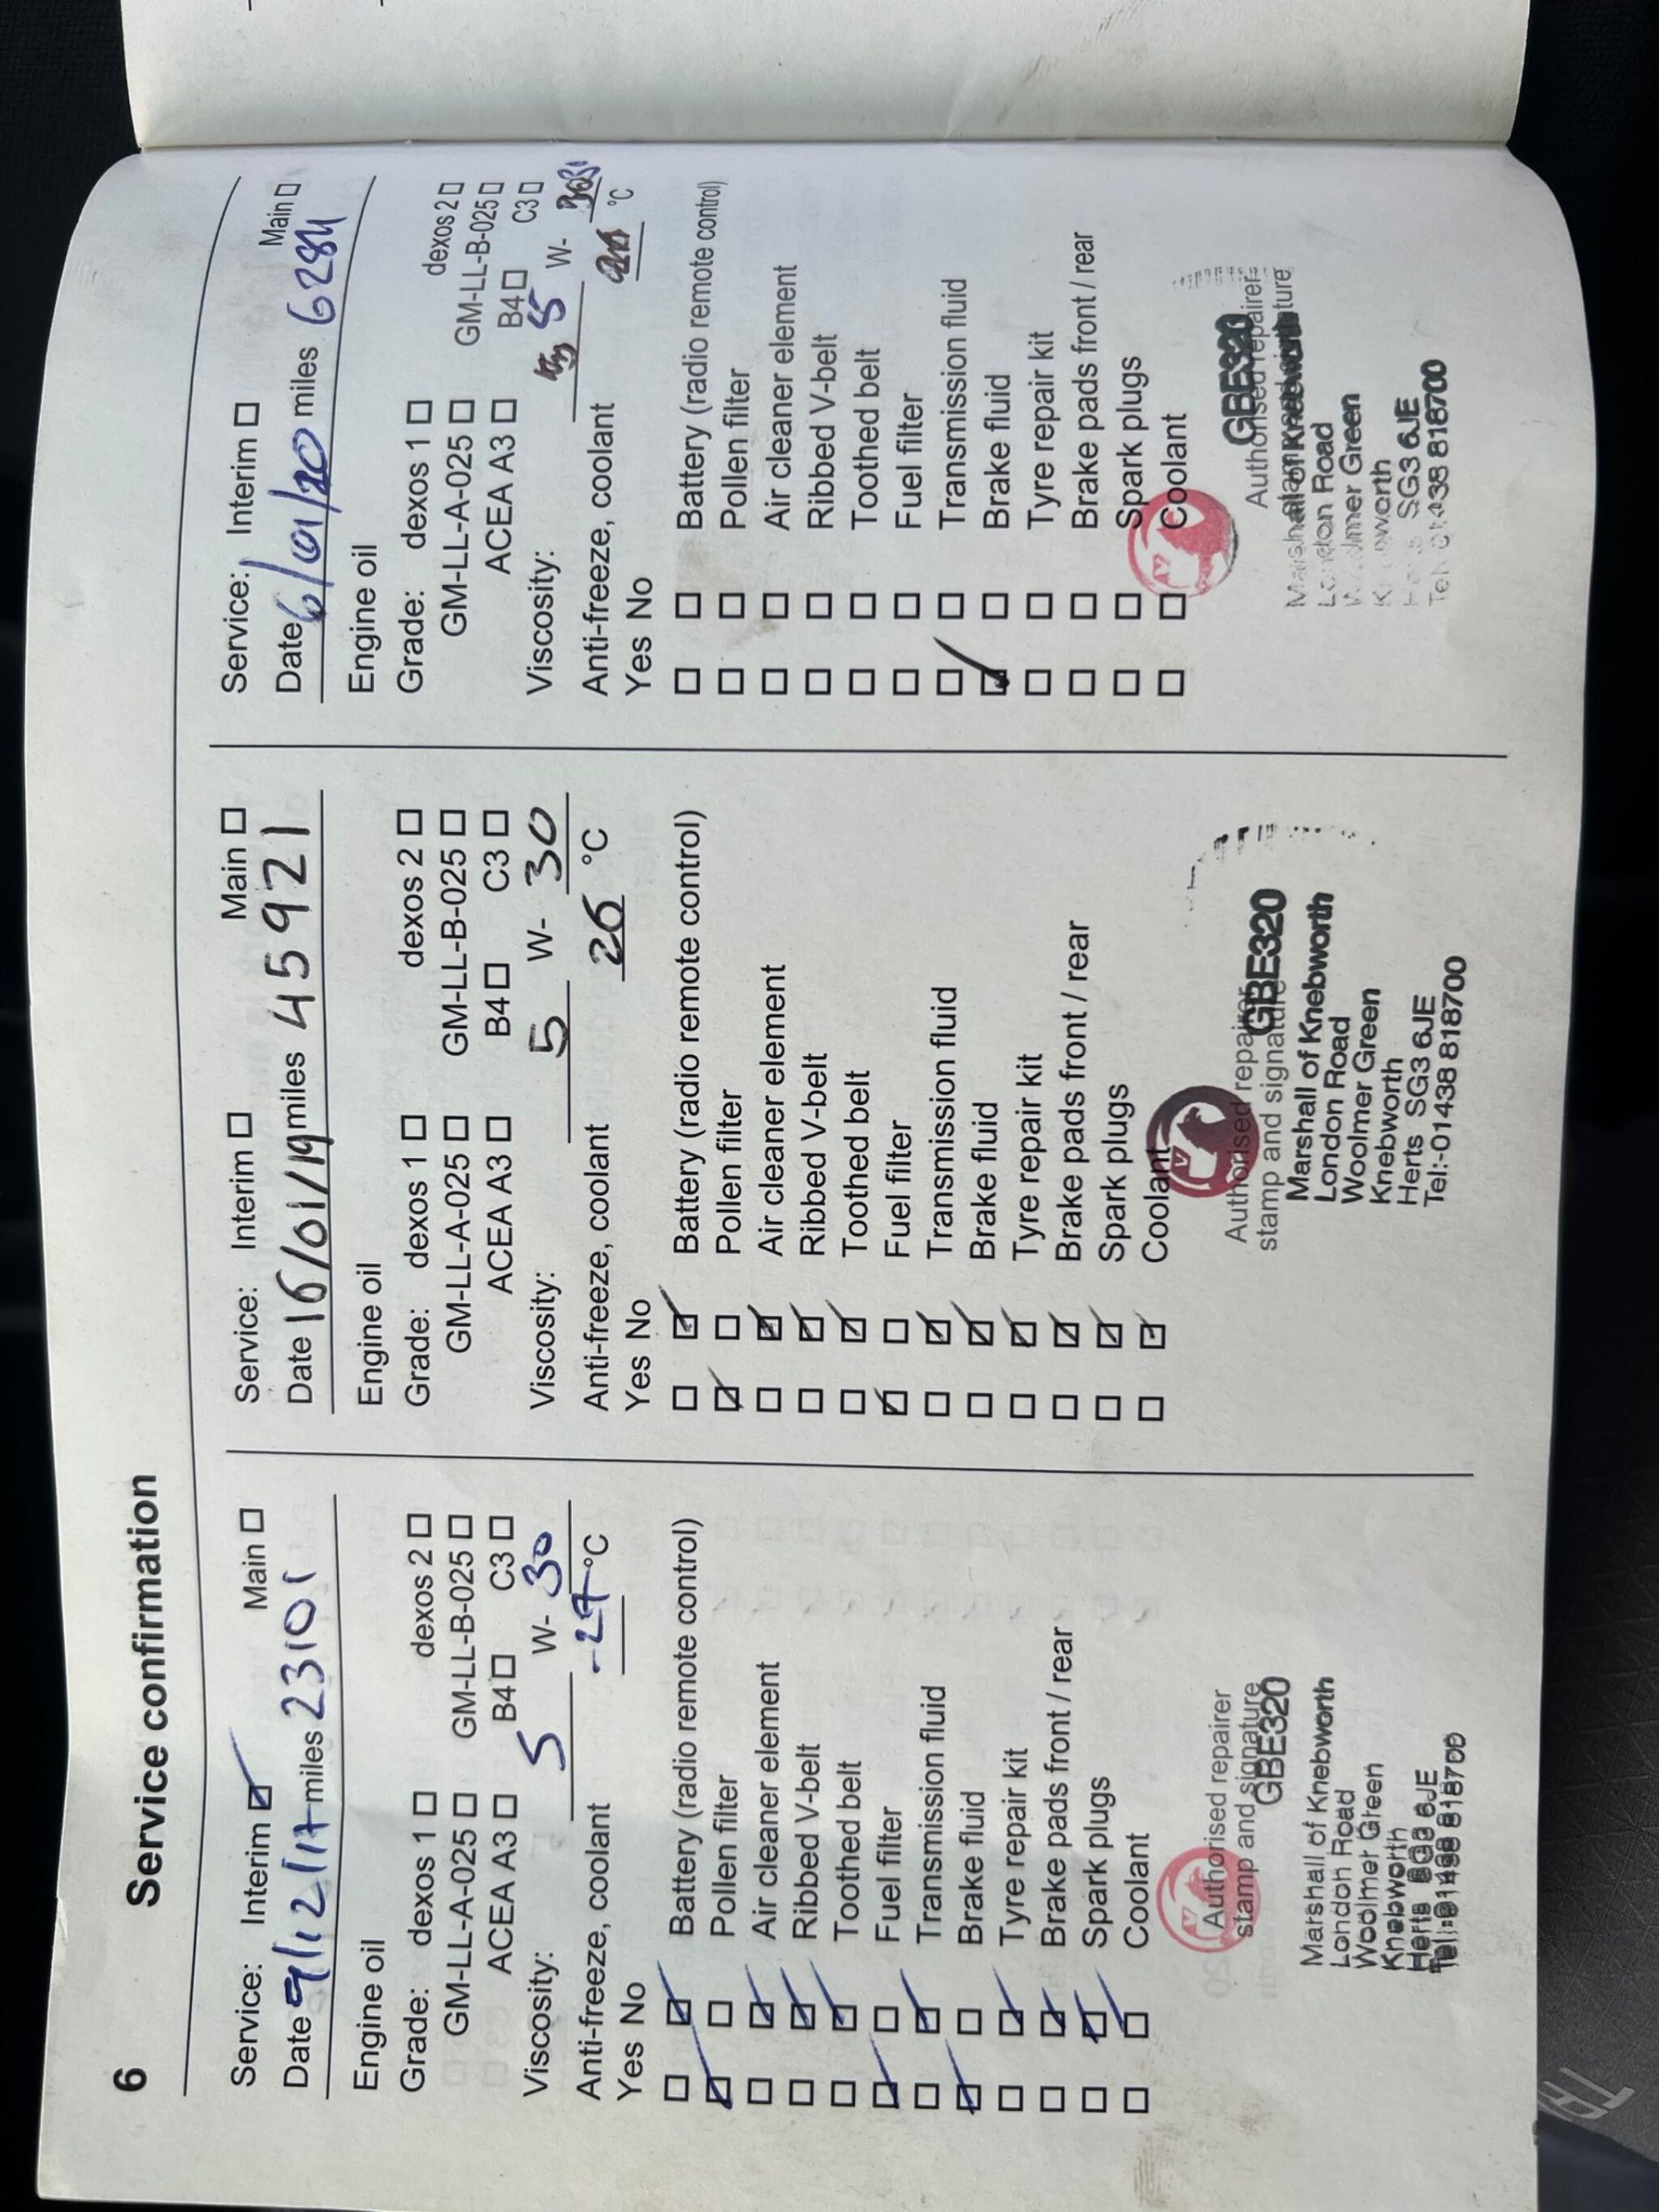 6 Service confirmation
Service: Interim ☑ Main ☐
Date 9/12/17 miles 23101
Engine oil
Grade: dexos 1 ☐ dexos 2 ☐
GM-LL-A-025 ☐ GM-LL-B-025 ☐
ACEA A3 ☐ B4 ☐ C3 ☐
Viscosity: 5 W- 30
Anti-freeze, coolant -27 °C
Yes No
☐ ☑ Battery (radio remote control)
☑ ☐ Pollen filter
☐ ☑ Air cleaner element
☐ ☑ Ribbed V-belt
☐ ☑ Toothed belt
☑ ☐ Fuel filter
☐ ☑ Transmission fluid
☑ ☐ Brake fluid
☐ ☑ Tyre repair kit
☐ ☑ Brake pads front / rear
☐ ☑ Spark plugs
☐ ☑ Coolant
Authorised repairer
stamp and signature
GBE320
Marshall of Knebworth
London Road
Woolmer Green
Knebworth
Herts SG3 6JE
Tel:-01438 818700
Service: Interim ☐ Main ☐
Date 16/01/19 miles 45921
Engine oil
Grade: dexos 1 ☐ dexos 2 ☐
GM-LL-A-025 ☐ GM-LL-B-025 ☐
ACEA A3 ☐ B4 ☐ C3 ☐
Viscosity: 5 W- 30
Anti-freeze, coolant 26 °C
Yes No
☐ ☑ Battery (radio remote control)
☑ ☐ Pollen filter
☐ ☑ Air cleaner element
☐ ☑ Ribbed V-belt
☐ ☑ Toothed belt
☑ ☐ Fuel filter
☐ ☑ Transmission fluid
☐ ☑ Brake fluid
☐ ☑ Tyre repair kit
☐ ☑ Brake pads front / rear
☐ ☑ Spark plugs
☐ ☑ Coolant
Authorised repairer
stamp and signature
GBE320
Marshall of Knebworth
London Road
Woolmer Green
Knebworth
Herts SG3 6JE
Tel:-01438 818700
Service: Interim ☐ Main ☐
Date 6/01/20 miles 6284
Engine oil
Grade: dexos 1 ☐ dexos 2 ☐
GM-LL-A-025 ☐ GM-LL-B-025 ☐
ACEA A3 ☐ B4 ☐ C3 ☐
Viscosity: 5 W-
Anti-freeze, coolant °C
Yes No
☐ ☐ Battery (radio remote control)
☐ ☐ Pollen filter
☐ ☐ Air cleaner element
☐ ☐ Ribbed V-belt
☐ ☐ Toothed belt
☐ ☐ Fuel filter
☐ ☐ Transmission fluid
☑ ☐ Brake fluid
☐ ☐ Tyre repair kit
☐ ☐ Brake pads front / rear
☐ ☐ Spark plugs
☐ ☐ Coolant
GBE320
Authorised repairer
Marshall of Knebworth
London Road
Woolmer Green
Knebworth
SG3 6JE
Tel 01438 818700